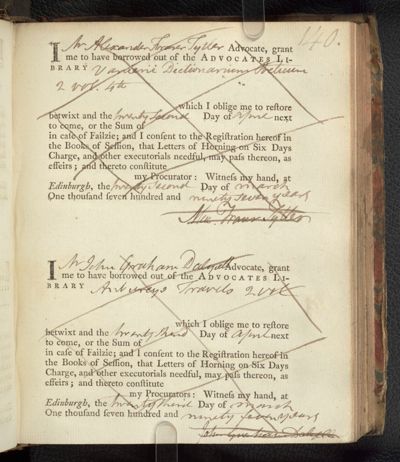 140.
I Mr Alexander Fraser Tytler Advocate, grant
me to have borrowed out of the ADVOCATES LI-
BRARY Vanierii Dictionarium Poeticum
2 vol. 4to
which I oblige me to restore
betwixt and the twenty second Day of April next
to come, or the Sum of
in case of Failzie; and I consent to the Registration hereof in
the Books of Session, that Letters of Horning on Six Days
Charge, and other executorials needful, may pass thereon, as
effeirs; and thereto constitute
my Procurator: Witness my hand, at
Edinburgh, the twenty second Day of march
One thousand seven hundred and ninety seven years
Alex Fraser Tytler
I Mr John Graham Dalyell Advocate, grant
me to have borrowed out of the ADVOCATES LI-
BRARY Anbureys Travels 2 vol
which I oblige me to restore
betwixt and the twenty third Day of April next
to come, or the Sum of
in case of Failzie; and I consent to the Registration hereof in
the Books of Session, that Letters of Horning on Six Days
Charge, and other executorials needful, may pass thereon, as
effeirs; and thereto constitute
my Procurators: Witness my hand, at
Edinburgh, the twenty third Day of march
One thousand seven hundred and ninety seven years
John Graham Dalyell